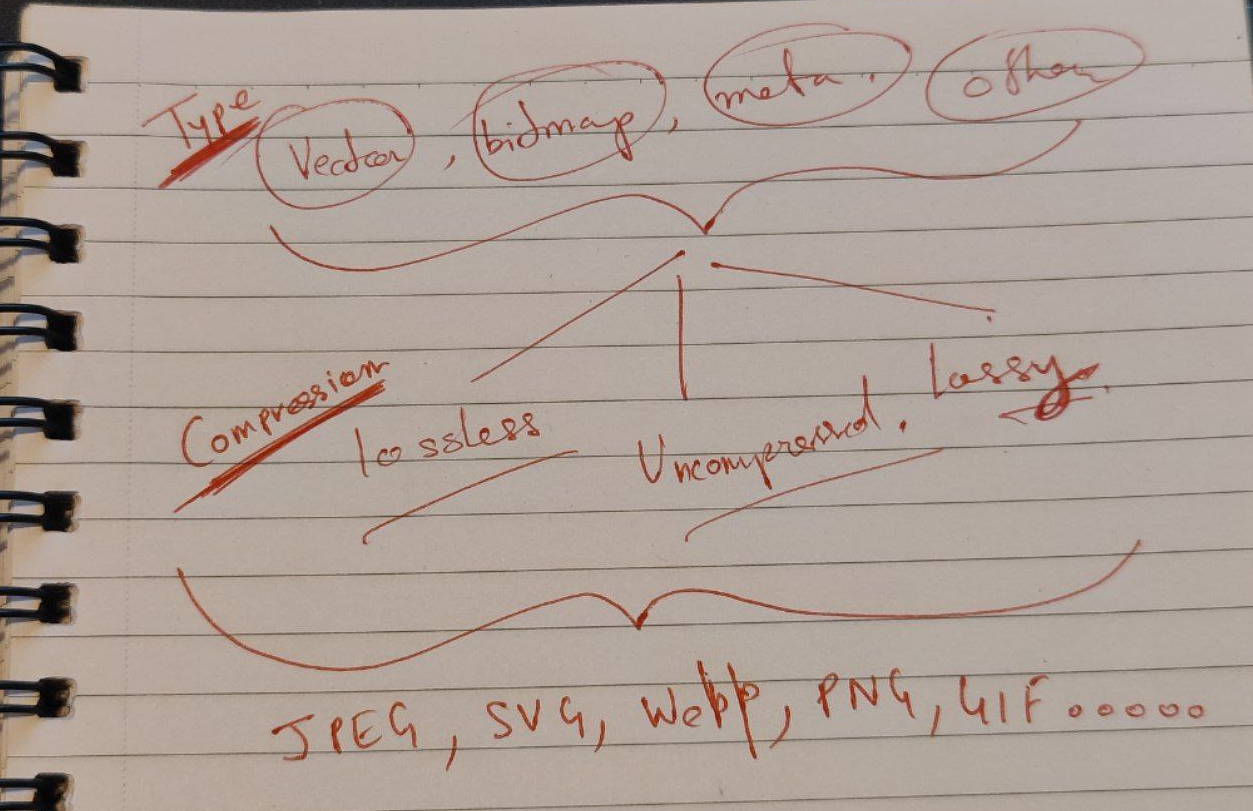 Type Vector, bitmap, meta. other
Compression lossless Uncompressed. lossy.
JPEG, SVG, Webp, PNG, GIF.....